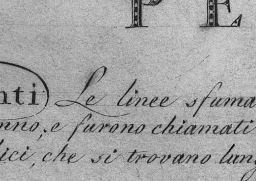 P E
nti) Le linee sfuma
nno, e furono chiamati
lici, che si trovano lung